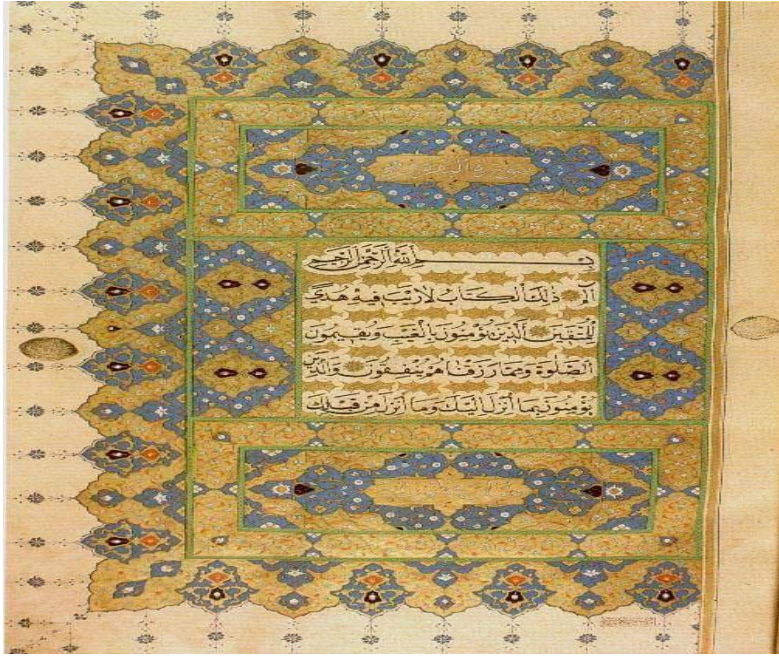 بِسْمِ اللّٰهِ الرَّحْمٰنِ الرَّحِيمِ
الم ذٰلِكَ الْكِتَابُ لَا رَيْبَ فِيهِ هُدًى
لِلْمُتَّقِينَ الَّذِينَ يُؤْمِنُونَ بِالْغَيْبِ وَيُقِيمُونَ
الصَّلٰوةَ وَمِمَّا رَزَقْنَاهُمْ يُنْفِقُونَ وَالَّذِينَ
يُؤْمِنُونَ بِمَا أُنْزِلَ إِلَيْكَ وَمَا أُنْزِلَ مِنْ قَبْلِكَ